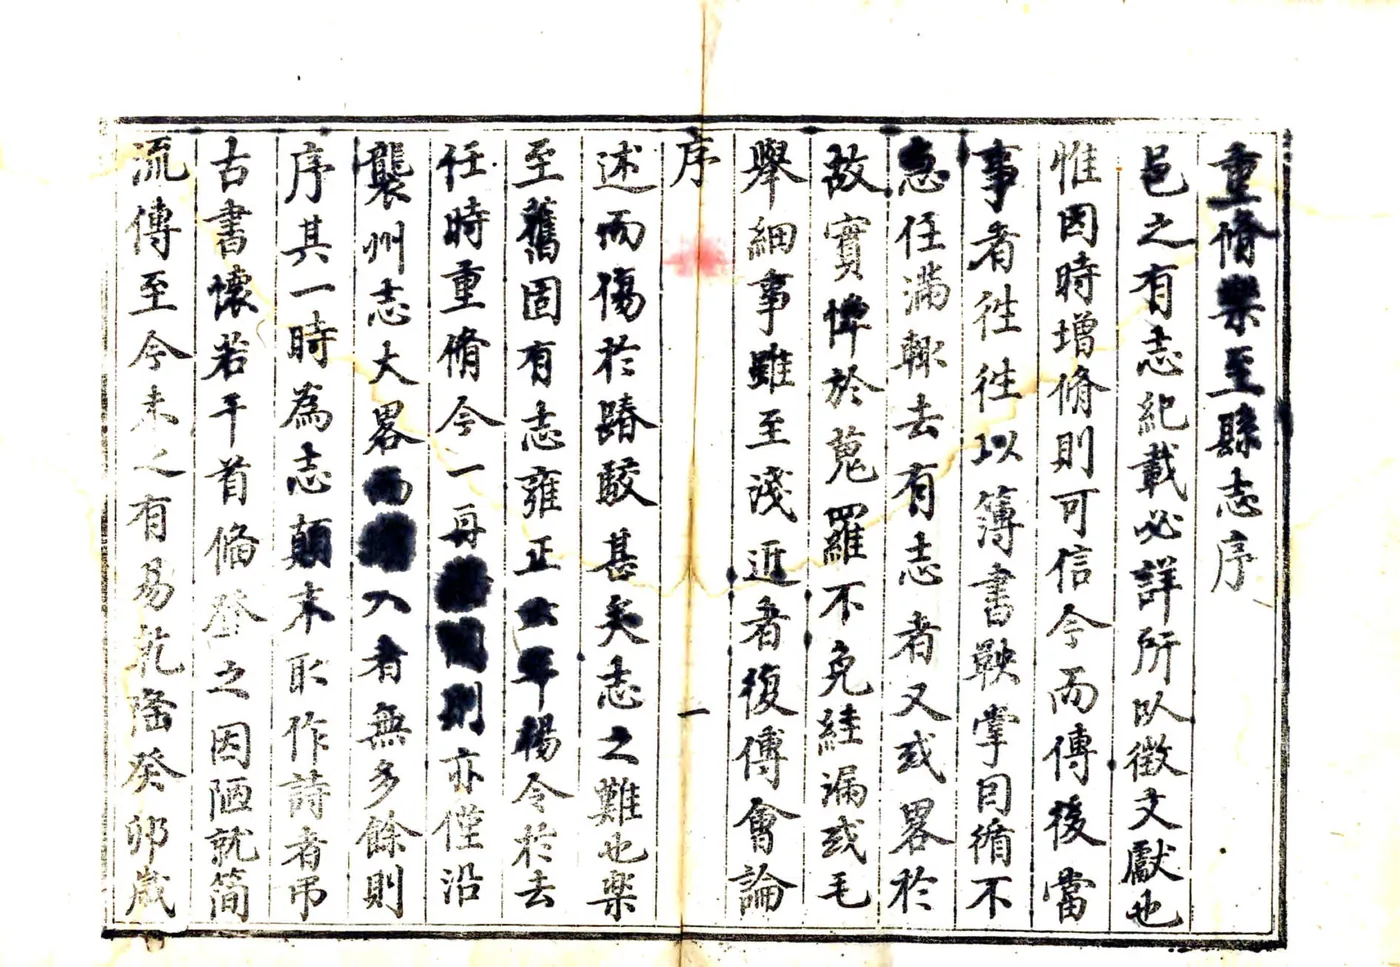 重脩樂至縣志序
邑之有志紀載必詳所以徵文獻也
惟因時増脩則可信今而傳後當
事者往往以簿書鞅掌因循不
急任滿輒去有志者又或畧於
故實憚於蒐羅不免絓漏或毛
舉細事雖至淺近者復傅會論
序
一
述而傷於踳駮甚矣志之難也樂
至舊固有志雍正六年楊令於去
任時重脩今一再則亦僅沿
襲州志大畧入者無多餘則
序其一時為志顛末耴作詩者弔
古書懷若干首脩登之因陋就简
流傳至今未之有易乾隆癸卯歲